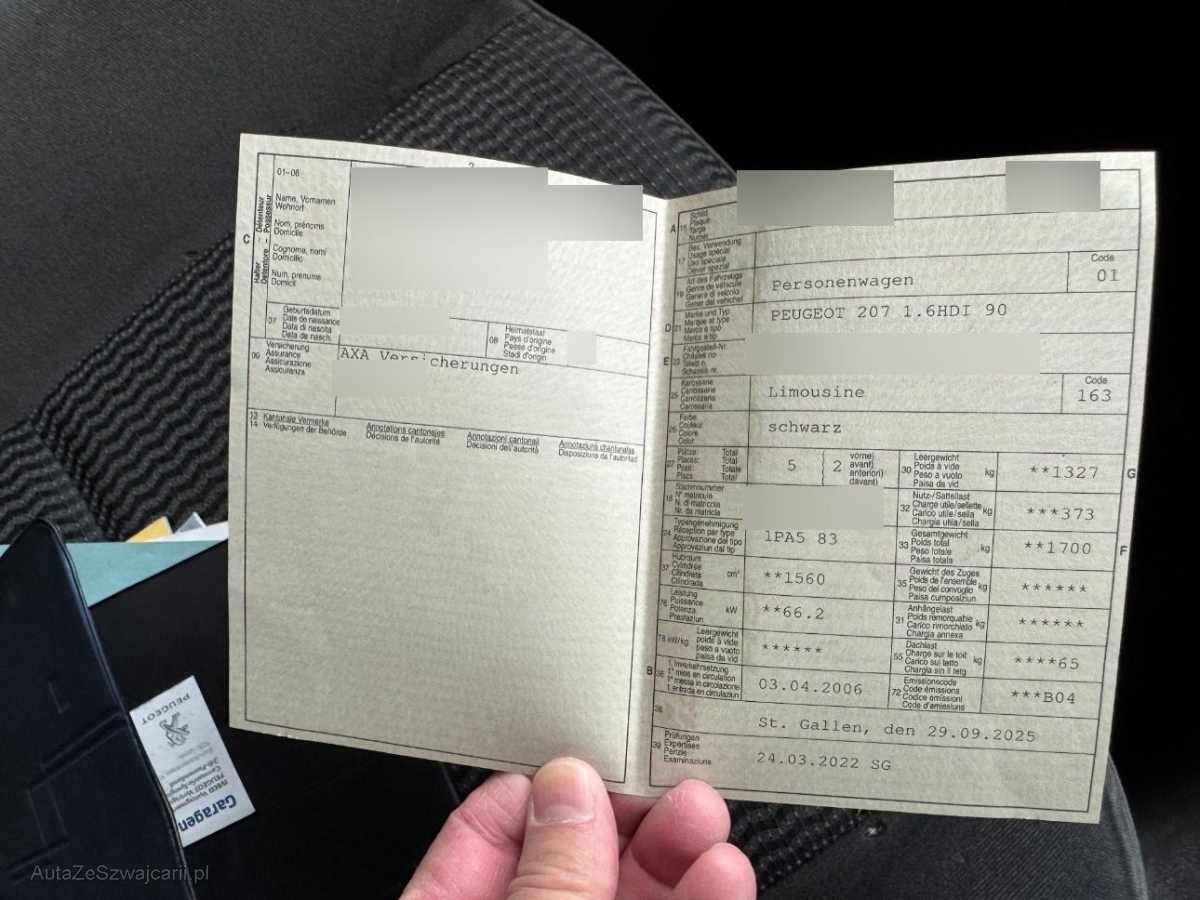 01-06
Name, Vornamen
Wohnort
Nom, prénoms
Domicile
Cognome, nomi
Domicilio
Num, prenums
Domicil
C
Halter
Détenteur
Detentore
Possessur
07
Geburtsdatum
Date de naissance
Data di nascita
Data da nasch.
08
Heimatstaat
Pays d'origine
Paese d'origine
Stadi d'origin
09
Versicherung
Assurance
Assicurazione
Assicuranza
AXA Versicherungen
13
14
Kantonale Vermerke
Verfügungen der Behörde
Annotations cantonales
Décisions de l'autorité
Annotazioni cantonali
Decisioni dell'autorità
Annotaziuns chantunalas
Disposiziuns da l'autoritad
A
15
Schild
Plaque
Targa
Numer
17
Bes. Verwendung
Usage spécial
Uso speciale
Diever spezial
19
Art des Fahrzeugs
Genre de véhicule
Genere di veicolo
Gener dal vehichel
Personenwagen
Code
01
D
21
Marke und Typ
Marque et type
Marca e tipo
Marca e tip
PEUGEOT 207 1.6HDI 90
E
23
Fahrgestell-Nr.
Châssis no
Telaio n.
Schassis nr.
25
Karosserie
Carrosserie
Carrozzeria
Carossaria
Limousine
Code
163
26
Farbe
Couleur
Colore
Colur
schwarz
27
Plätze: Total
Places: Total
Posti: Totale
Plazs: Total
5
2
vorne)
avant)
anteriori)
davant)
30
Leergewicht
Poids à vide
Peso a vuoto
Paisa da vid
kg
**1327
G
18
Stammnummer
N° matricule
N. di matricola
Nr. da matricla
32
Nutz-/Sattellast
Charge utile/sellette
Carico utile/sella
Chargia utila/sella
kg
***373
24
Typengenehmigung
Réception par type
Approvazione del tipo
Approvaziun dal tip
1PA5 83
33
Gesamtgewicht
Poids total
Peso totale
Paisa totala
kg
**1700
F
37
Hubraum
Cylindrée
Cilindrata
Cilindrada
cm³
**1560
35
Gewicht des Zuges
Poids de l'ensemble
Peso del convoglio
Paisa cumposiziun
kg
******
76
Leistung
Puissance
Potenza
Prestaziun
kW
**66.2
31
Anhängelast
Poids remorquable
Carico rimorchiato
Chargia annexa
kg
******
78 kW/kg
Leergewicht
poids à vide
peso a vuoto
paisa da vid
******
55
Dachlast
Charge sur le toit
Carico sul tetto
Chargia sin il tetg
kg
****65
B
36
1. Inverkehrsetzung
1re mise en circulation
1a messa in circolazione
1. entrada en circulaziun
03.04.2006
72
Emissionscode
Code émissions
Codice emissioni
Code d'emissiuns
***B04
38
St. Gallen, den 29.09.2025
39
Prüfungen
Expertises
Perizie
Examinaziuns
24.03.2022 SG
PEUGEOT
Garagen
AutaZeSzwajcarii.pl